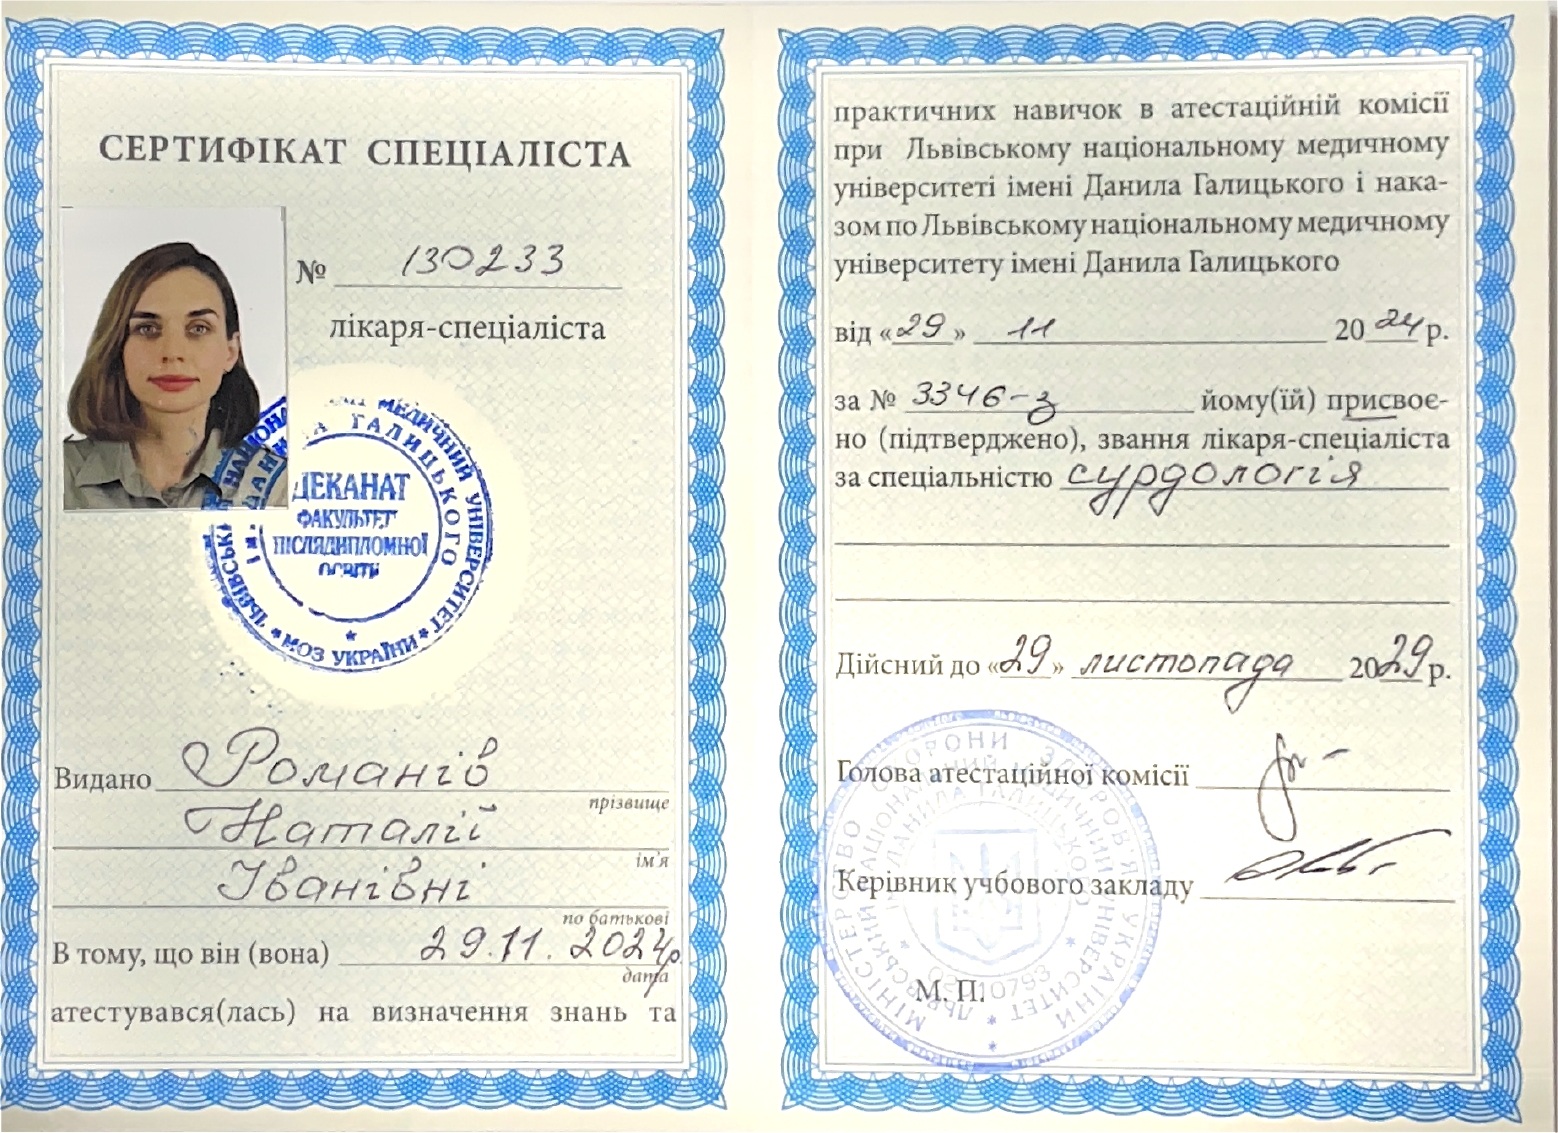 СЕРТИФІКАТ СПЕЦІАЛІСТА
№ 130233
лікаря-спеціаліста
ЛЬВІВСЬКИЙ НАЦІОНАЛЬНИЙ МЕДИЧНИЙ УНІВЕРСИТЕТ
ІМ. ДАНИЛА ГАЛИЦЬКОГО
ДЕКАНАТ
ФАКУЛЬТЕТ
ПІСЛЯДИПЛОМНОЇ
ОСВІТИ
* МОЗ УКРАЇНИ *
Видано Романів
прізвище
Наталії
ім'я
Іванівні
по батькові
В тому, що він (вона) 29.11.2024р.
дата
атестувався(лась) на визначення знань та
практичних навичок в атестаційній комісії
при Львівському національному медичному
університеті імені Данила Галицького і нака-
зом по Львівському національному медичному
університету імені Данила Галицького
від «29» 11 2024р.
за № 3346-з йому(їй) присвоє-
но (підтверджено), звання лікаря-спеціаліста
за спеціальністю сурдологія
Дійсний до «29» листопада 2029р.
Голова атестаційної комісії
Керівник учбового закладу
МІНІСТЕРСТВО ОХОРОНИ ЗДОРОВ'Я УКРАЇНИ
ЛЬВІВСЬКИЙ НАЦІОНАЛЬНИЙ МЕДИЧНИЙ УНІВЕРСИТЕТ
ІМ. ДАНИЛА ГАЛИЦЬКОГО
М. П.